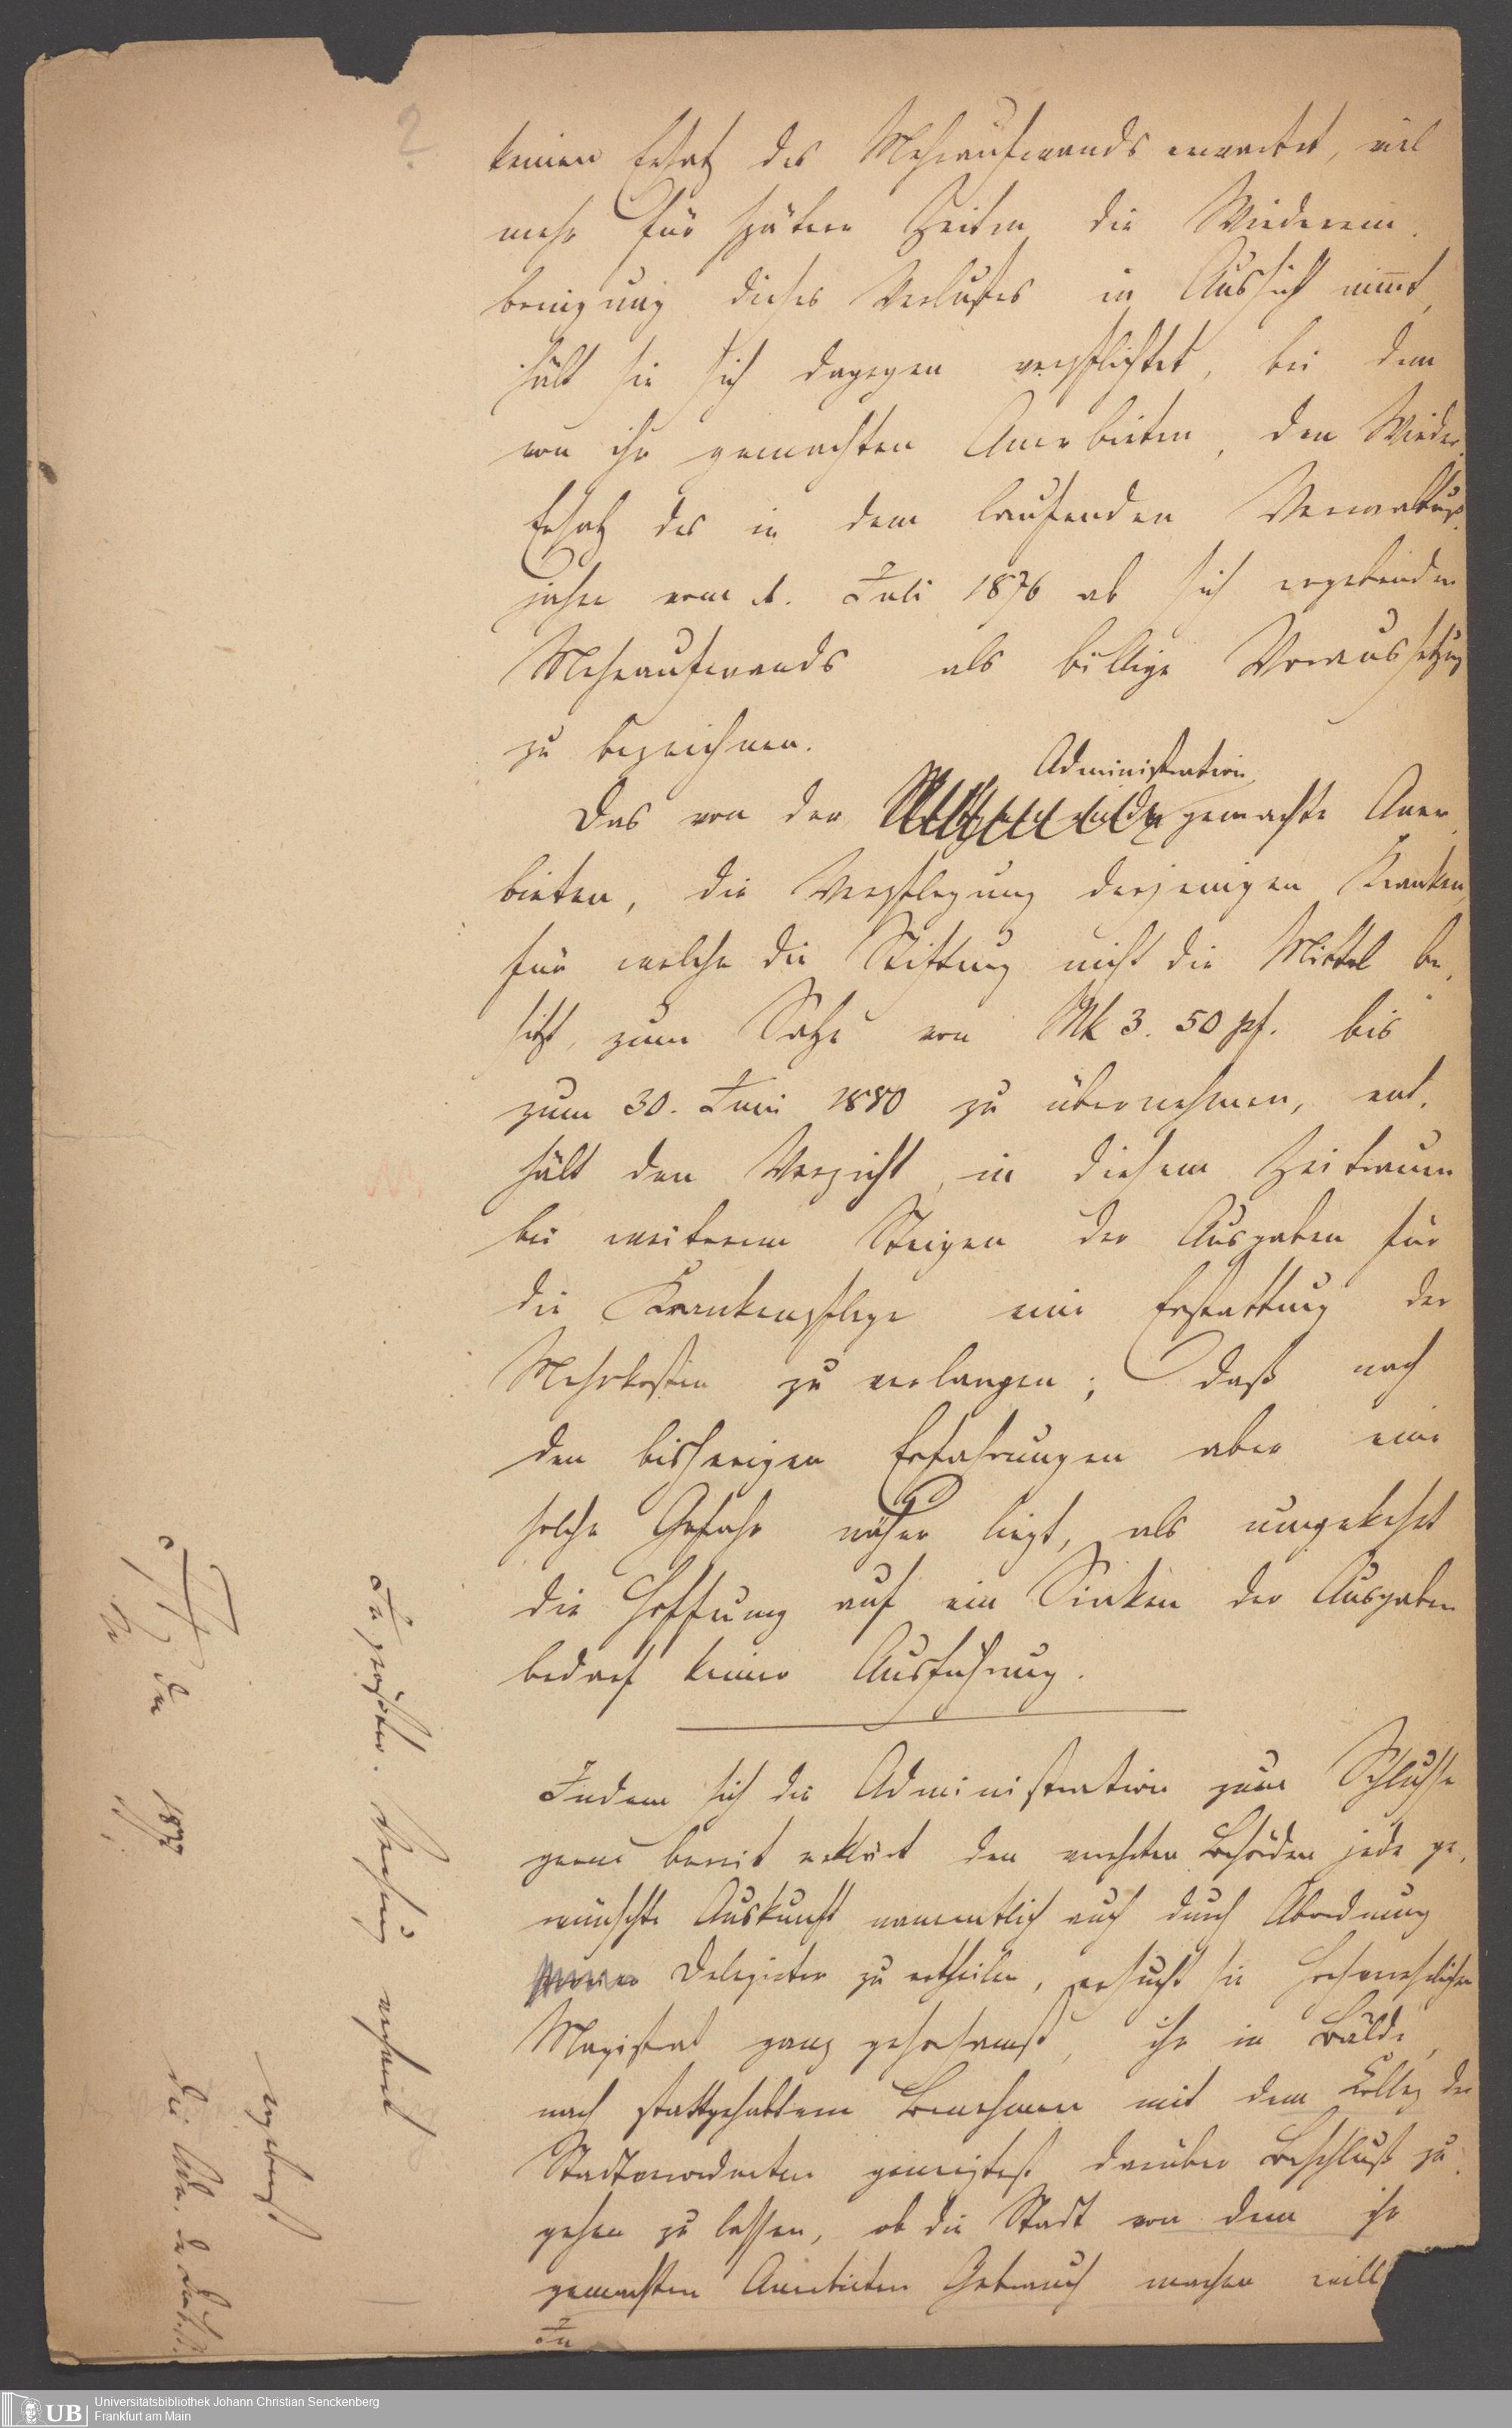 keinen Ersatz des Mehraufwands erwartet, viel
mehr für spätere Zeiten die Wiederein
bringung dieses Verlustes in Aussicht nimmt,
hält sie sich dagegen verpflichtet, bei dem
von ihr gemachten Anerbieten, den Wieder
Ersatz des in dem laufenden Verwaltungs
jahre vom 1. Juli 1876 ab sich ergebenden
Mehraufwands als billige Voraussetzung
zu bezeichnen.
Administration
Das von der gemachte Aner
bieten, die Verpflegung derjenigen Kranken,
für welche die Stiftung nicht die Mittel be
sitzt, zum Satze von Mk 3. 50 pf. bis
zum 30. Juni 1880 zu übernehmen, ent
hält den Verzicht, in diesem Zeitraum
bei weiterem Steigen der Ausgaben für
die Krankenpflege eine Erstattung der
Mehrkosten zu verlangen; daß nach
den bisherigen Erfahrungen aber eine
solche Gefahr näher liegt, als umgekehrt
die Hoffnung auf ein Sinken der Ausgaben
bedarf keiner Ausführung.
Indem sich die Administration zum Schlusse
gerne bereit erklärt den verehrten Behörden jede ge
wünschte Auskunft namentlich auch durch Abordnung
Delegirter zu ertheilen, ersucht sie
Magistrat ganz gehorsamst, ihr in Bälde,
nach stattgehabtem Benehmen mit dem Colleg der
Stadtverordneten geneigtest darüber Beschluß zu
gehen zu lassen, ob die Stadt von dem ihr
gemachten Anerbieten Gebrauch machen will
In
In größter verharrt
ergebenst
Die Adm. der
Ffm den 1877
Universitätsbibliothek Johann Christian Senckenberg
Frankfurt am Main
UB